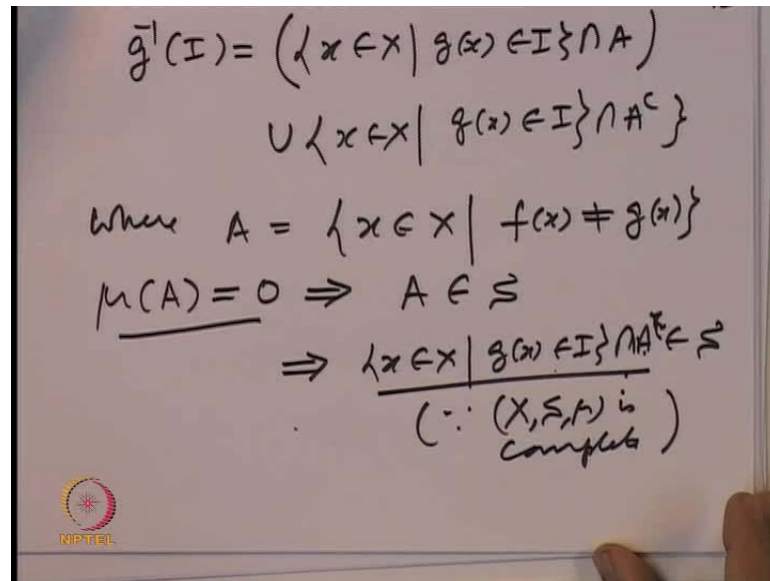 g⁻¹(I) = ({x ∈ X | g(x) ∈ I} ∩ A)
∪ {x ∈ X | g(x) ∈ I} ∩ Aᶜ}
where A = {x ∈ X | f(x) ≠ g(x)}
μ(A) = 0 ⇒ A ∈ S
⇒ {x ∈ X | g(x) ∈ I} ∩ A ∈ S
(∵ (X, S, μ) is
complete)
NPTEL